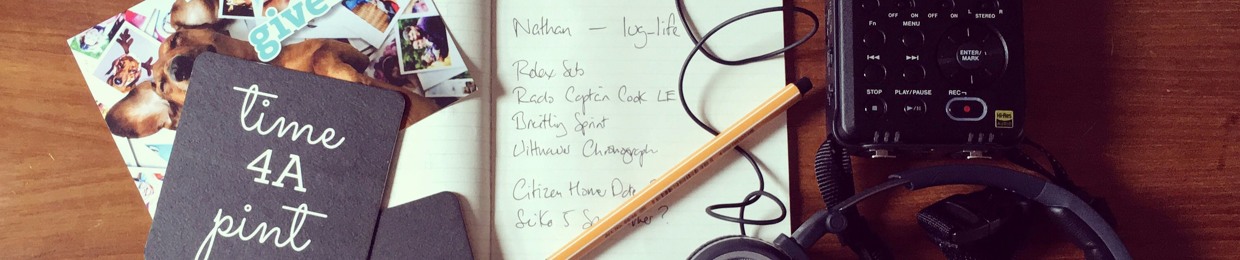 give
time
4A
pint
Nathan — lug_life
Rolex Sub
Rado Captain Cook LE
Breitling Sprint
Wittnauer Chronograph
Citizen Homer Date
Seiko 5
OFF ON OFF ON L STEREO R
Fn MENU
ENTER/
MARK
STOP PLAY/PAUSE REC
Hi-Res
AUDIO